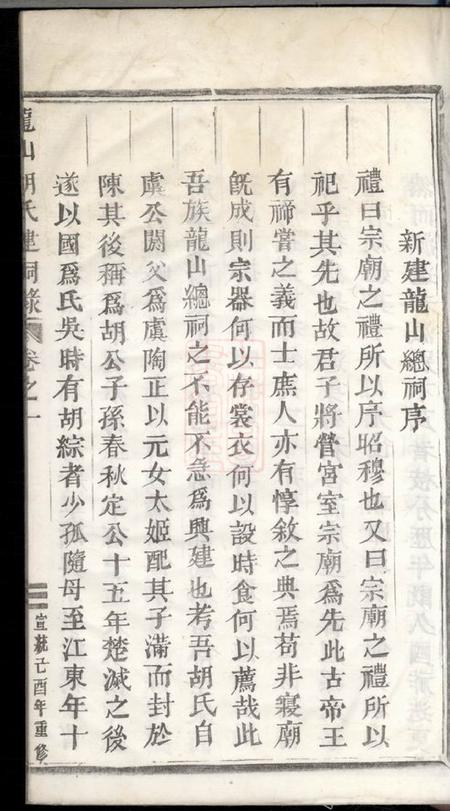 新建龍山總祠序
禮曰宗廟之禮所以序昭穆也又曰宗廟之禮所以
祀乎其先也故君子將營宮室宗廟為先此古帝王
有禘嘗之義而士庶人亦有惇敘之典焉苟非寢廟
旣成則宗器何以存裳衣何以設時食何以薦哉此
吾族龍山總祠之不能不急為興建也考吾胡氏自
虞公閼父為虞陶正以元女太姬配其子滿而封於
陳其後稱為胡公子孫春秋定公十五年楚滅之後
遂以國為氏吳時有胡綜者少孤隨母至江東年十
龍山胡氏建祠錄 卷之一 宣統己酉年重修